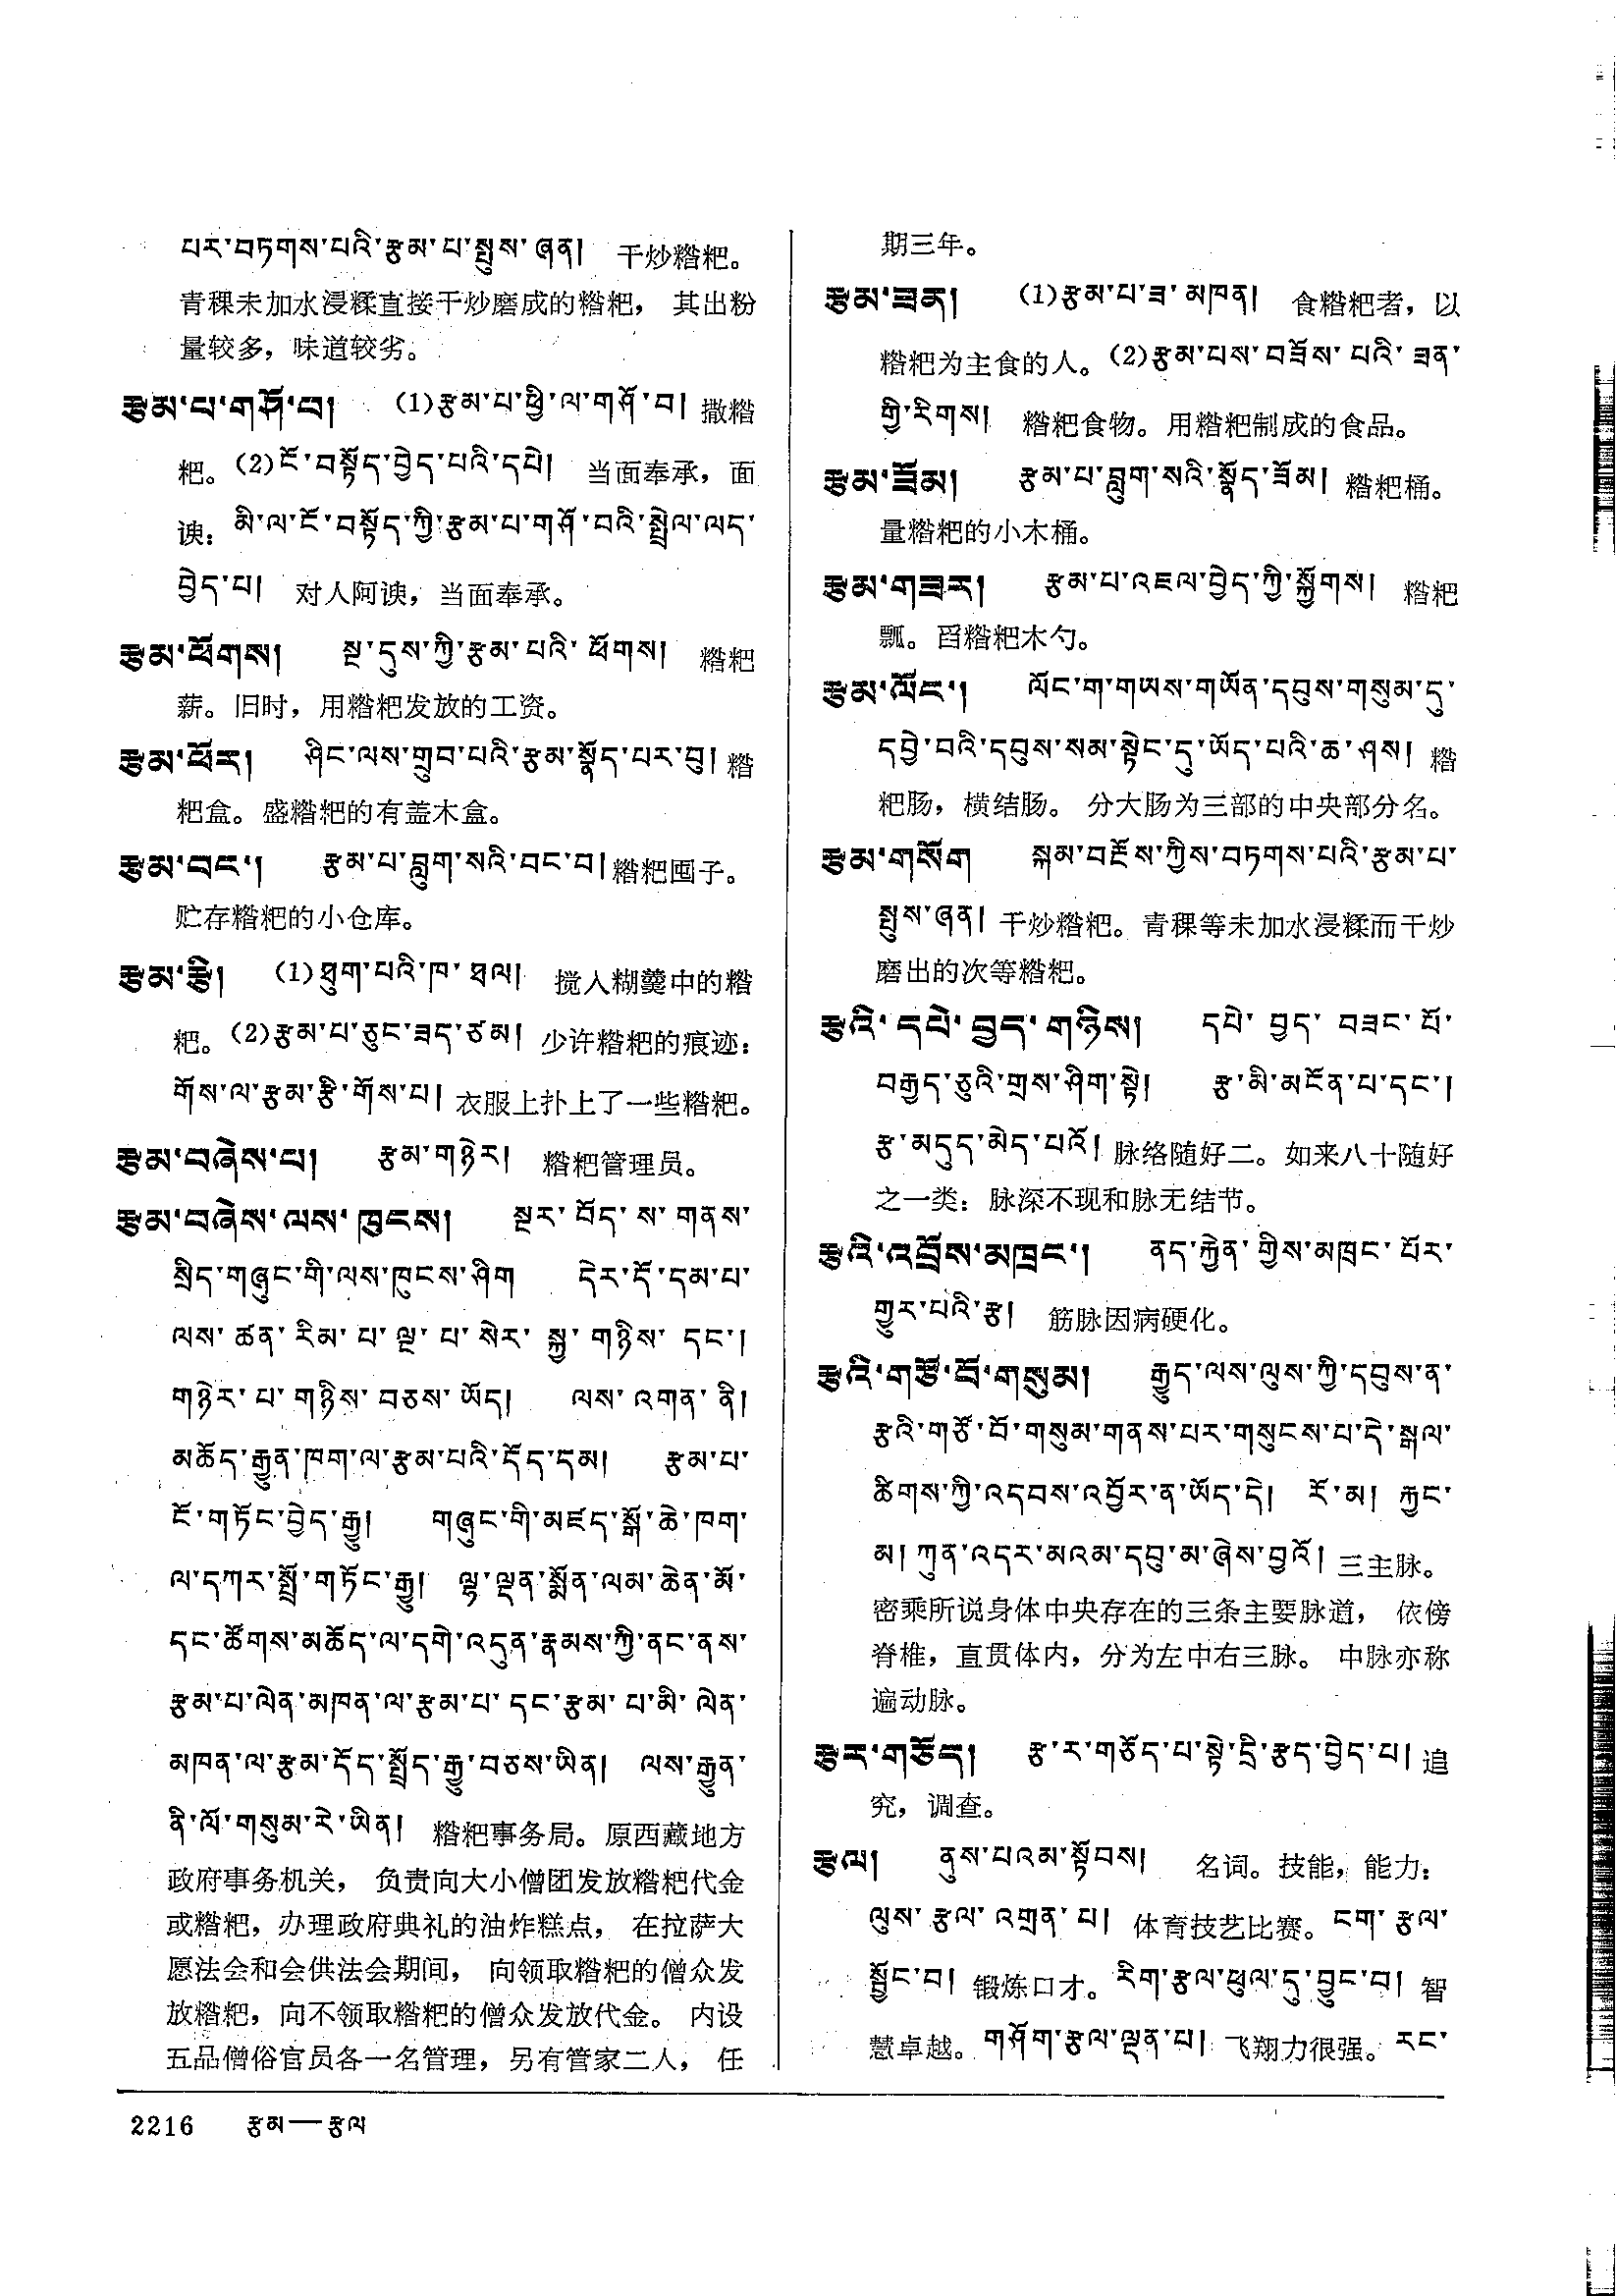 པར་བཏགས་པའི་རྩམ་པ་སྤུས་ཞན། 干炒糌粑。
青稞未加水浸糅直接干炒磨成的糌粑， 其出粉
量较多，味道较劣。
རྩམ་པ་གཤོ་བ། (1)རྩམ་པ་ཕྱི་ལ་གཤོ་བ། 撒糌
粑。(2)ངོ་བསྟོད་བྱེད་པའི་དཔེ། 当面奉承，面
谀：མི་ལ་ངོ་བསྟོད་ཀྱི་རྩམ་པ་གཤོ་བའི་སྤྲེལ་ལད་
བྱེད་པ། 对人阿谀，当面奉承。
རྩམ་ཕོགས། སྔ་དུས་ཀྱི་རྩམ་པའི་ཕོགས། 糌粑
薪。旧时，用糌粑发放的工资。
རྩམ་ཕོར། ཤིང་ལས་གྲུབ་པའི་རྩམ་སྣོད་པར་བུ། 糌
粑盒。盛糌粑的有盖木盒。
རྩམ་བང་། རྩམ་པ་བླུག་སའི་བང་བ། 糌粑囤子。
贮存糌粑的小仓库。
རྩམ་རྩི། (1)ཐུག་པའི་ཁ་ཐལ། 搅入糊羹中的糌
粑。(2)རྩམ་པ་ཅུང་ཟད་ཙམ། 少许糌粑的痕迹：
གོས་ལ་རྩམ་རྩི་གོས་པ། 衣服上扑上了一些糌粑。
རྩམ་བཞེས་པ། རྩམ་གཉེར། 糌粑管理员。
རྩམ་བཞེས་ལས་ཁུངས། སྔར་བོད་ས་གནས་
སྲིད་གཞུང་གི་ལས་ཁུངས་ཤིག དེར་དོ་དམ་པ་
ལས་ཚན་རིམ་པ་ལྔ་པ་སེར་སྐྱ་གཉིས་དང་།
གཉེར་པ་གཉིས་བཅས་ཡོད། ལས་འགན་ནི།
མཆོད་རྒྱུན་ཁག་ལ་རྩམ་པའི་དོད་དམ། རྩམ་པ་
ངོ་གཏོང་བྱེད་རྒྱུ། གཞུང་གི་མཛད་སྒོ་ཆེ་ཁག་
ལ་དཀར་སྤྲོ་གཏོང་རྒྱུ། ལྷ་ལྡན་སྨོན་ལམ་ཆེན་མོ་
དང་ཚོགས་མཆོད་ལ་དགེ་འདུན་རྣམས་ཀྱི་ནང་ནས་
རྩམ་པ་ལེན་མཁན་ལ་རྩམ་པ་དང་རྩམ་པ་མི་ལེན་
མཁན་ལ་རྩམ་དོད་སྤྲོད་རྒྱུ་བཅས་ཡིན། ལས་རྒྱུན་
ནི་ལོ་གསུམ་རེ་ཡིན། 糌粑事务局。原西藏地方
政府事务机关， 负责向大小僧团发放糌粑代金
或糌粑，办理政府典礼的油炸糕点， 在拉萨大
愿法会和会供法会期间， 向领取糌粑的僧众发
放糌粑，向不领取糌粑的僧众发放代金。 内设
五品僧俗官员各一名管理，另有管家二人， 任
期三年。
རྩམ་ཟན། (1)རྩམ་པ་ཟ་མཁན། 食糌粑者，以
糌粑为主食的人。(2)རྩམ་པས་བཟོས་པའི་ཟན་
གྱི་རིགས། 糌粑食物。用糌粑制成的食品。
རྩམ་ཟོམ། རྩམ་པ་བླུག་སའི་སྣོད་ཟོམ། 糌粑桶。
量糌粑的小木桶。
རྩམ་གཟར། རྩམ་པ་འཇལ་བྱེད་ཀྱི་སྐྱོགས། 糌粑
瓢。舀糌粑木勺。
རྩམ་ལོང་། ལོང་ག་གཡས་གཡོན་དབུས་གསུམ་དུ་
དབྱེ་བའི་དབུས་སམ་སྟེང་དུ་ཡོད་པའི་ཆ་ཤས། 糌
粑肠，横结肠。 分大肠为三部的中央部分名。
རྩམ་གསོག སྐམ་བརྔོས་ཀྱིས་བཏགས་པའི་རྩམ་པ་
སྤུས་ཞན། 干炒糌粑。青稞等未加水浸糅而干炒
磨出的次等糌粑。
རྩའི་དཔེ་བྱད་གཉིས། དཔེ་བྱད་བཟང་པོ་
བརྒྱད་ཅུའི་གྲས་ཤིག་སྟེ། རྩ་མི་མངོན་པ་དང་།
རྩ་མདུད་མེད་པའོ། 脉络随好二。如来八十随好
之一类：脉深不现和脉无结节。
རྩའི་འབྲོས་མཁྲང་། ནད་རྐྱེན་གྱིས་མཁྲང་པོར་
གྱུར་པའི་རྩ། 筋脉因病硬化。
རྩའི་གཙོ་བོ་གསུམ། རྒྱུད་ལས་ལུས་ཀྱི་དབུས་ན་
རྩའི་གཙོ་བོ་གསུམ་གནས་པར་གསུངས་པ་དེ་སྒལ་
ཚིགས་ཀྱི་འདབས་འབྱོར་ན་ཡོད་དེ། རོ་མ། རྐྱང་
མ། ཀུན་འདར་མའམ་དབུ་མ་ཞེས་བྱའོ། 三主脉。
密乘所说身体中央存在的三条主要脉道， 依傍
脊椎，直贯体内，分为左中右三脉。 中脉亦称
遍动脉。
རྩར་གཅོད། རྩ་ར་གཅོད་པ་སྟེ་དྲི་རྩད་བྱེད་པ། 追
究，调查。
རྩལ། ནུས་པའམ་སྟོབས། 名词。技能，能力：
ལུས་རྩལ་འགྲན་པ། 体育技艺比赛。ངག་རྩལ་
སྦྱོང་བ། 锻炼口才。རིག་རྩལ་ཕུལ་དུ་བྱུང་བ། 智
慧卓越。གཤོག་རྩལ་ལྡན་པ། 飞翔力很强。རང་
2216 རྩམ—རྩལ